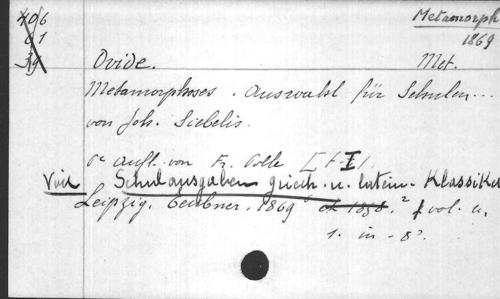 406
61
39
Metamorph
1869
Ovide. Met.
Metamorphoses. Auswahl für Schulen...
von Joh. Siebelis.
Aufl. von Fr. Polle [t. I].
Voir Schulausgaben griech. u. latein. Klassiker
Leipzig, Teubner, 1869 et 1858. 2 vol. u.
1. in-8°.